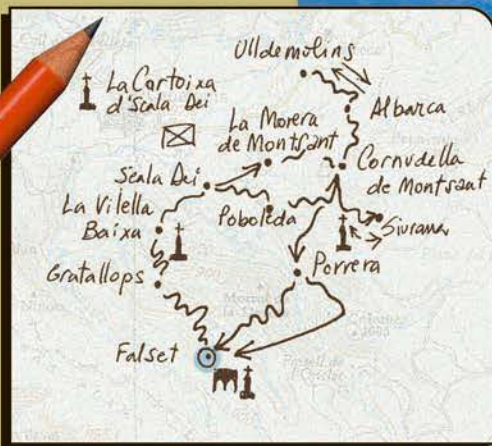 Ulldemolins
La Cartoixa
d'Scala Dei
Albarca
La Morera
de Montsant
Cornudella
de Montsant
Scala Dei
La Vilella
Baixa
Poboleda
Siurana
Gratallops
Porrera
Falset